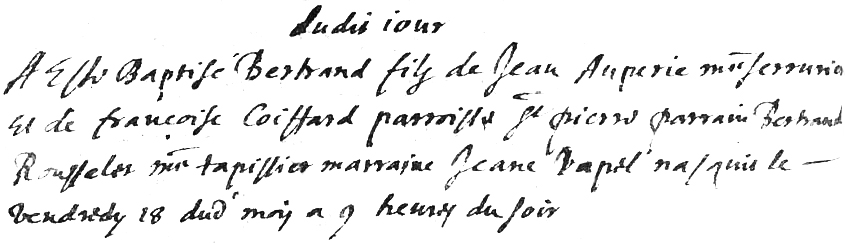 dudit iour
A Esté Baptisé Bertrand filz de Jean Auperie mre serrurier
et de françoise Coiffard parroisse St pierre parrain Bertrand
Rousselet mre tapissier marraine Jeane Papel nasquit le
vendredy 18 dud mois a 9 heures du soir